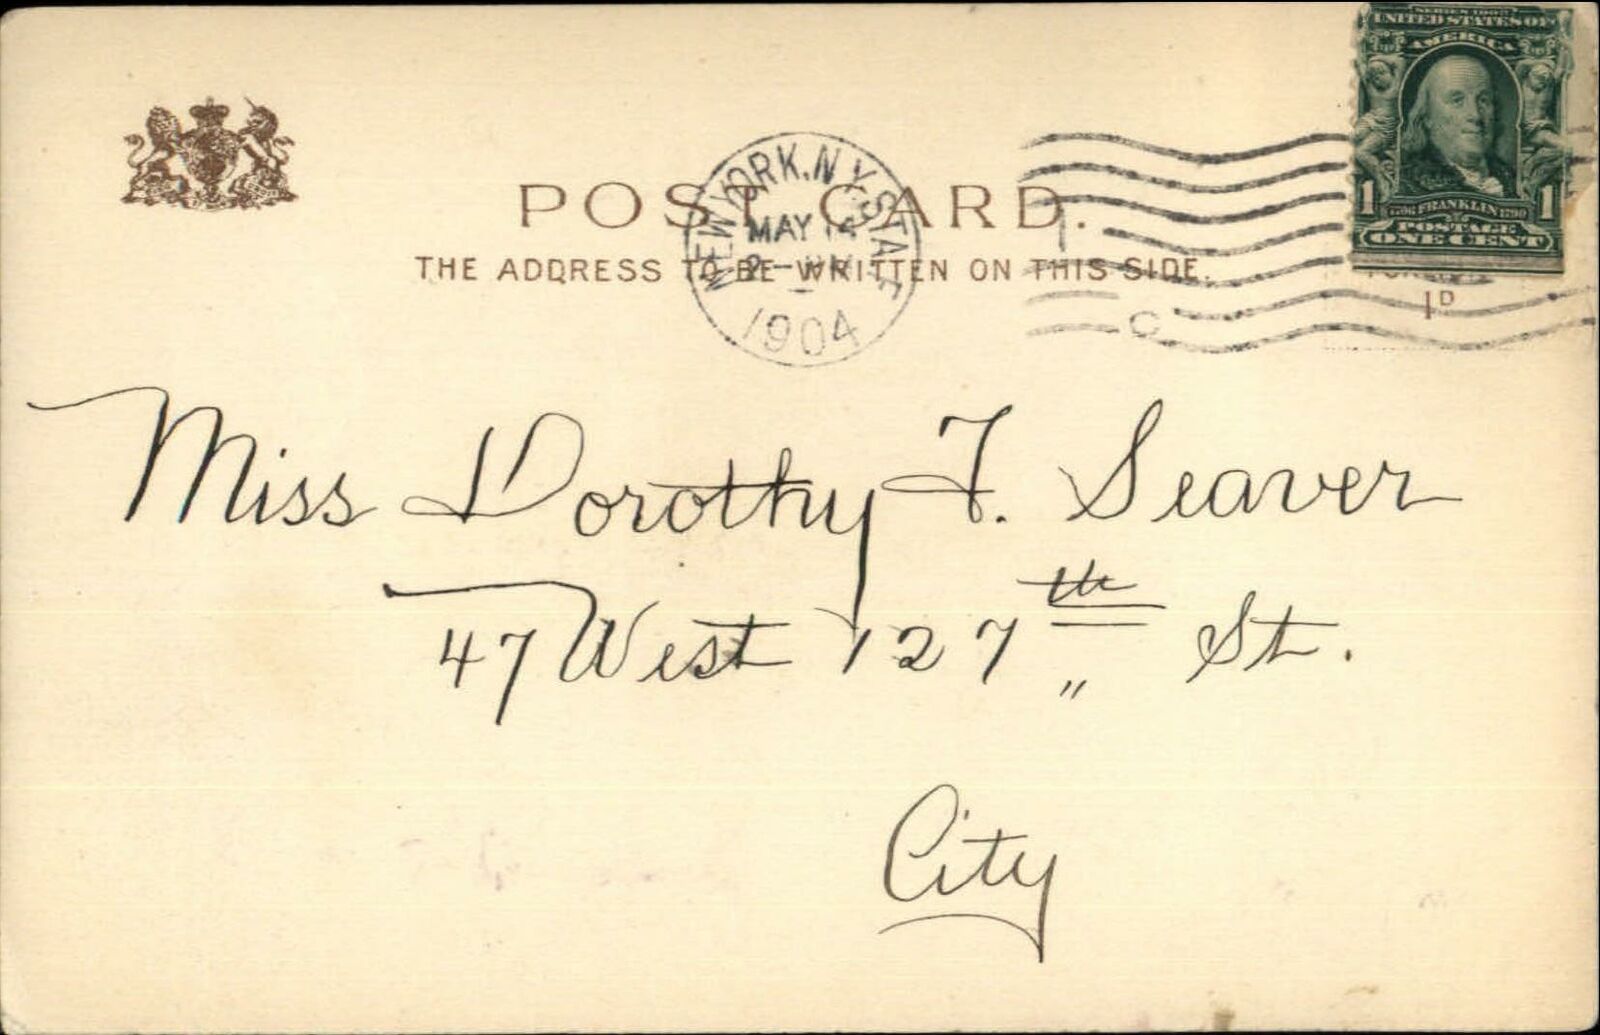 SERIES 1902
UNITED STATES OF
AMERICA
1 1796 FRANKLIN 1790 1
POSTAGE
ONE CENT
NEW YORK, N.Y. STA
MAY 14
2-
1904
C
POST CARD.
THE ADDRESS TO BE WRITTEN ON THIS SIDE.
1D
Miss Dorothy F. Seaver
47 West 127th " St.
City